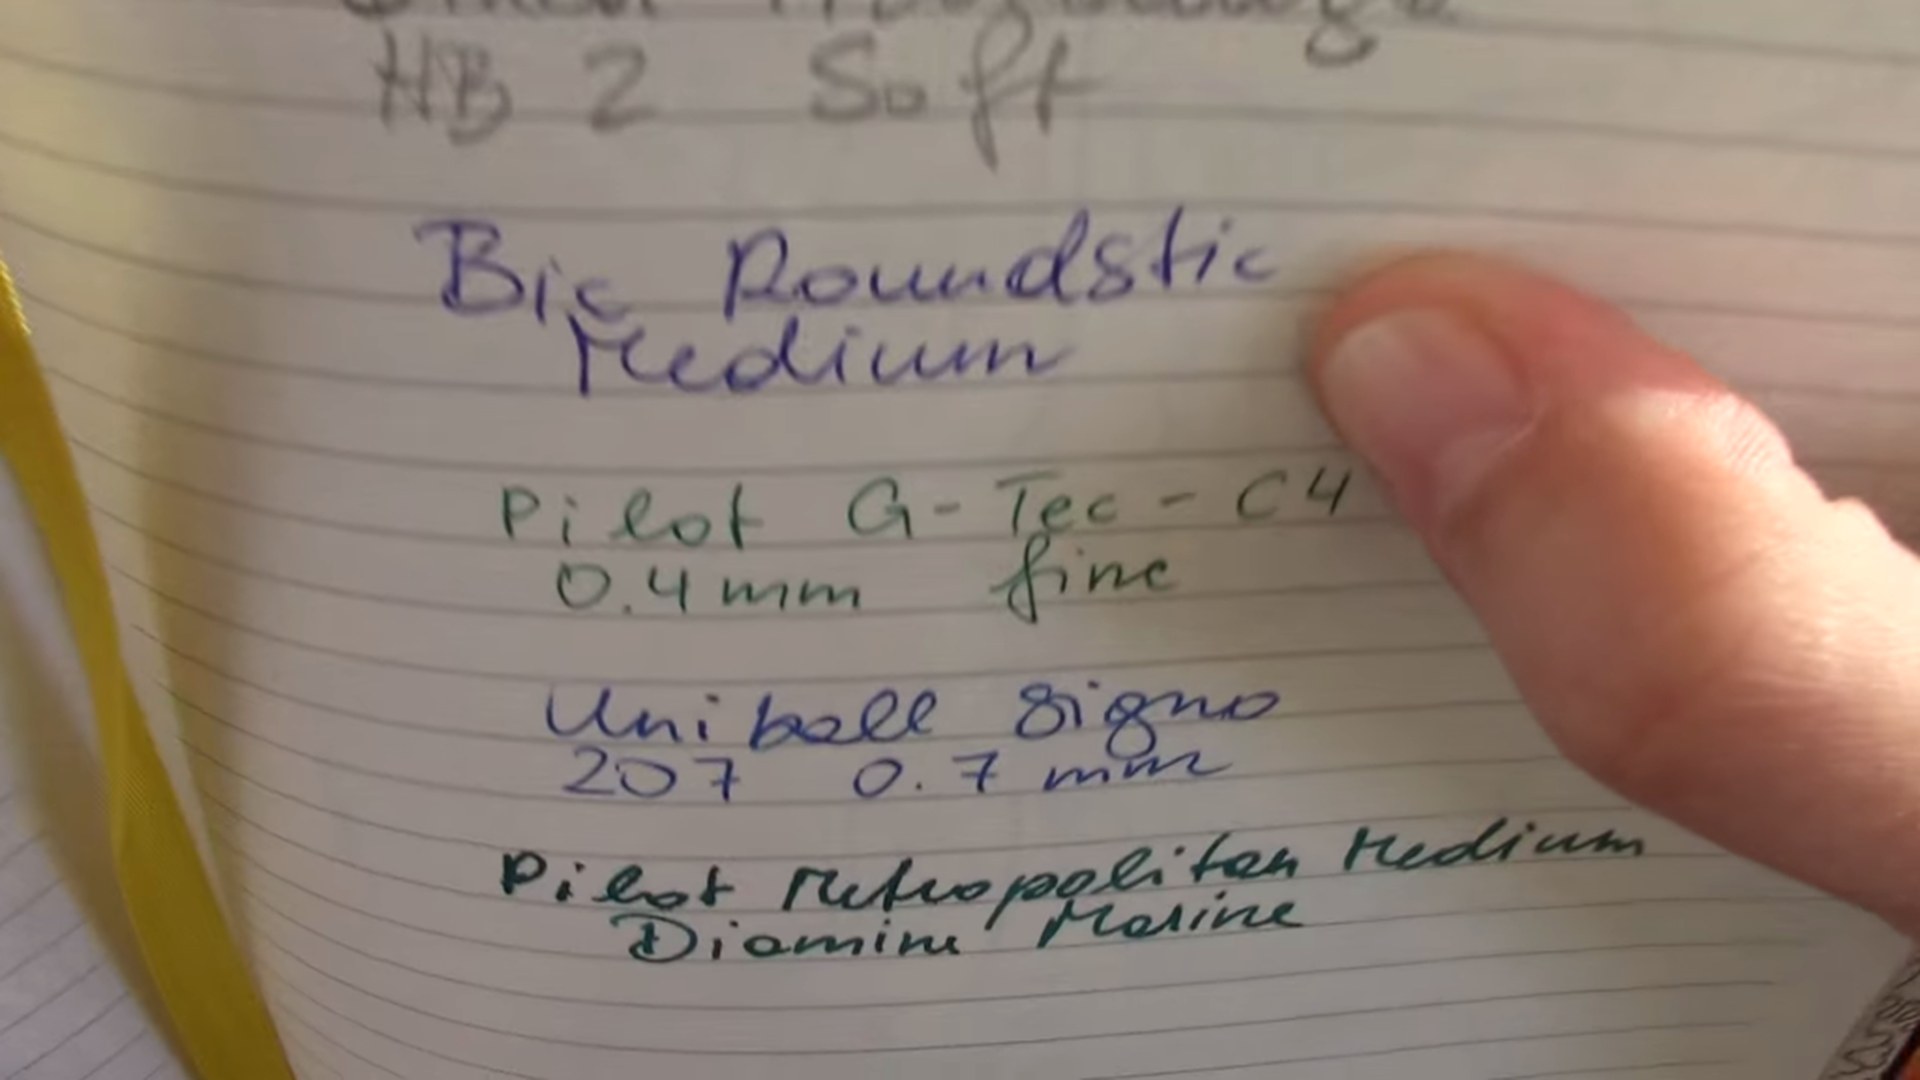 HB 2 Soft
Bic Roundstic
Medium
Pilot G-Tec-C4
0.4mm fine
Uniball Signo
207 0.7 mm
Pilot Metropolitan Medium
Diamine Marine